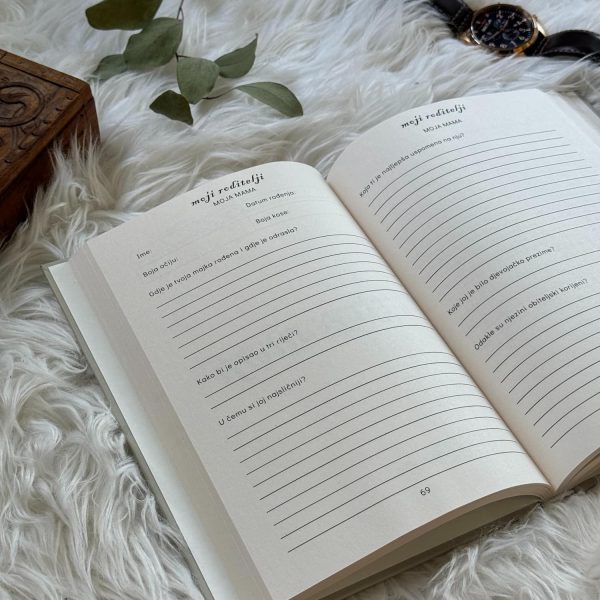 moji roditelji
MOJA MAMA
Ime:
Datum rođenja:
Boja očiju:
Boja kose:
Gdje je tvoja majka rođena i gdje je odrasla?
Kako bi je opisao u tri riječi?
U čemu si joj najsličniji?
69
moji roditelji
MOJA MAMA
Koja ti je najljepša uspomena na nju?
Koje joj je bilo djevojačko prezime?
Odakle su njezini obiteljski korijeni?